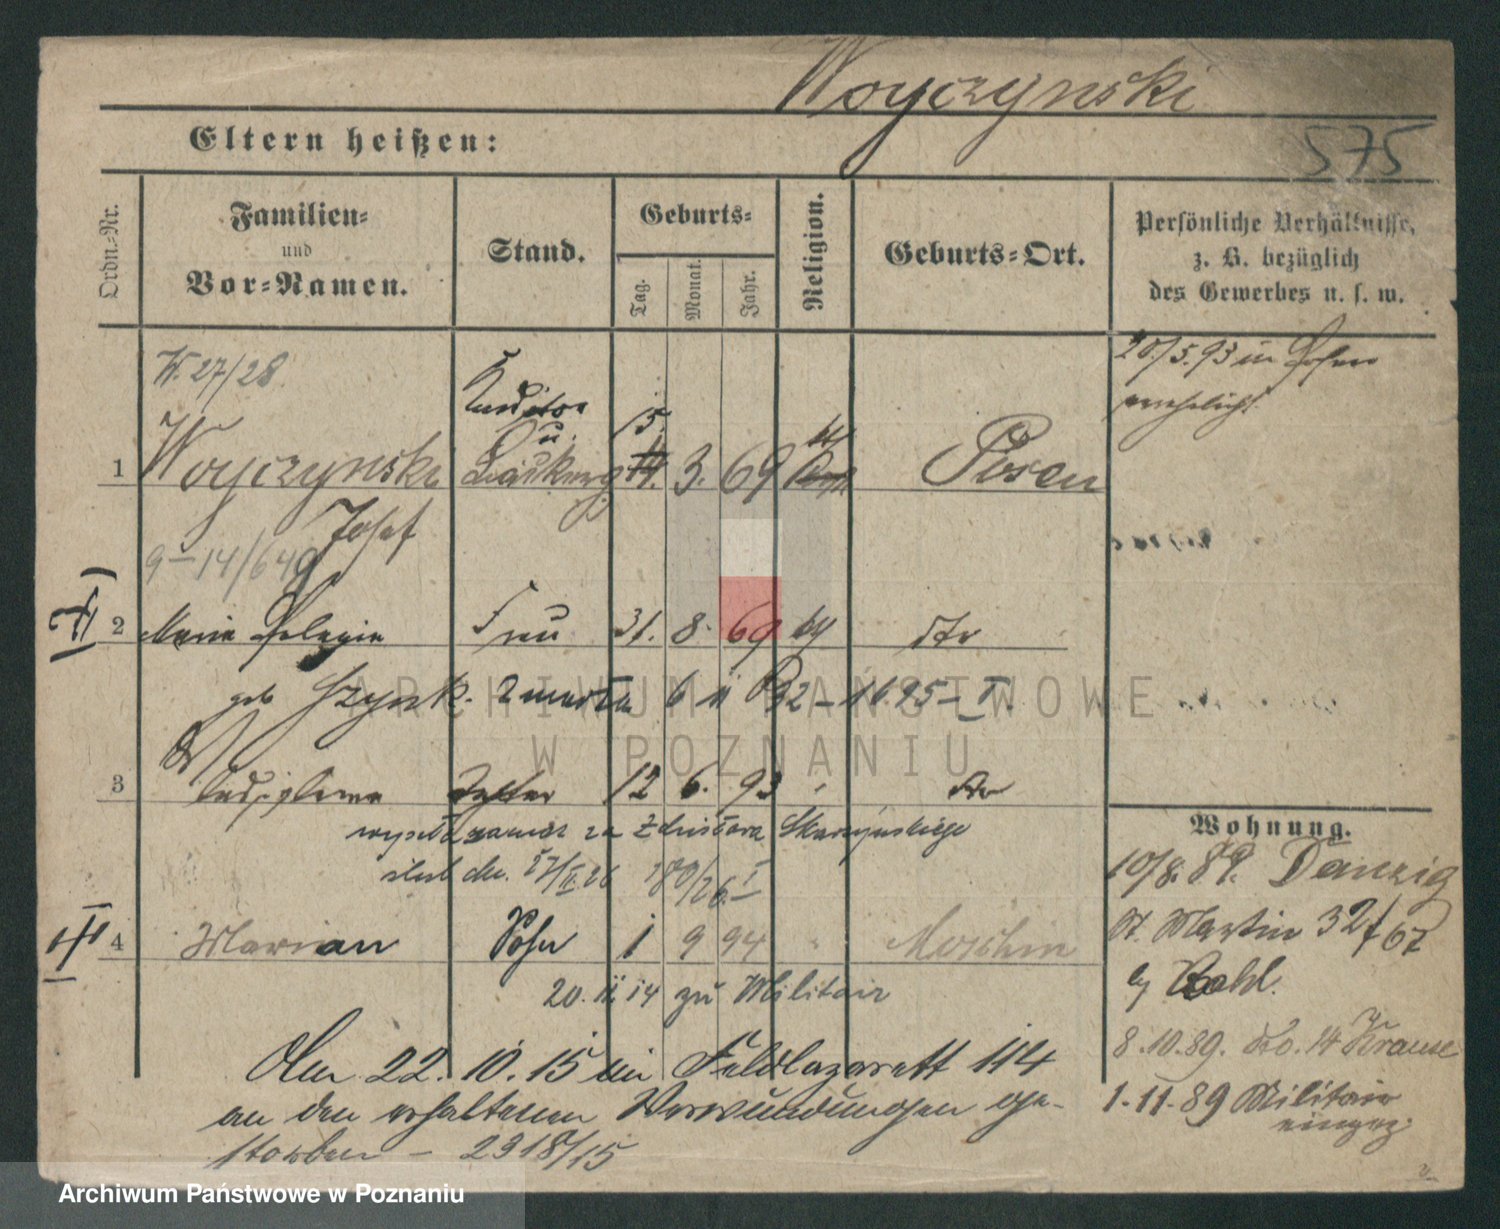 Woyczynski
575
Eltern heißen:
Ordn.-Nr.
Familien-
und
Vor-Namen.
Stand.
Geburts-
Tag.
Monat.
Jahr.
Religion.
Geburts-Ort.
Persönliche Verhältnisse,
z. B. bezüglich
des Gewerbes u. s. w.
W. 27/28
20/5.93 in Posen
verehelicht
Konditor
u.
15.
kt
1 Woyczynski 14. 3. 69 Posen
Josef
9-14/649
2 Maria Pelagia Frau 31. 8. 69 kt dto
geb Szynk. Zmarła 6 11 32 - 1695 - I.
3 Ladislawa Tochter 12 6. 93 " dto
za Zdzisława Skarzynskiego
ślub dn. 17/II 26 180/26 I
4 Marian Sohn 1 9 94 " Moschin
20. II 14 zu Militair
Am 22. 10. 15 im Feldlazarett 114
an den erhaltenen Verwundungen ge-
storben - 2318/15
Wohnung.
10/8. 89. Danzig
St. Martin 32 / 67
by
8.10.89. do. 14 Krause
1.11.89 Militair
eingez.
ARCHIWUM PAŃSTWOWE
W POZNANIU
Archiwum Państwowe w Poznaniu